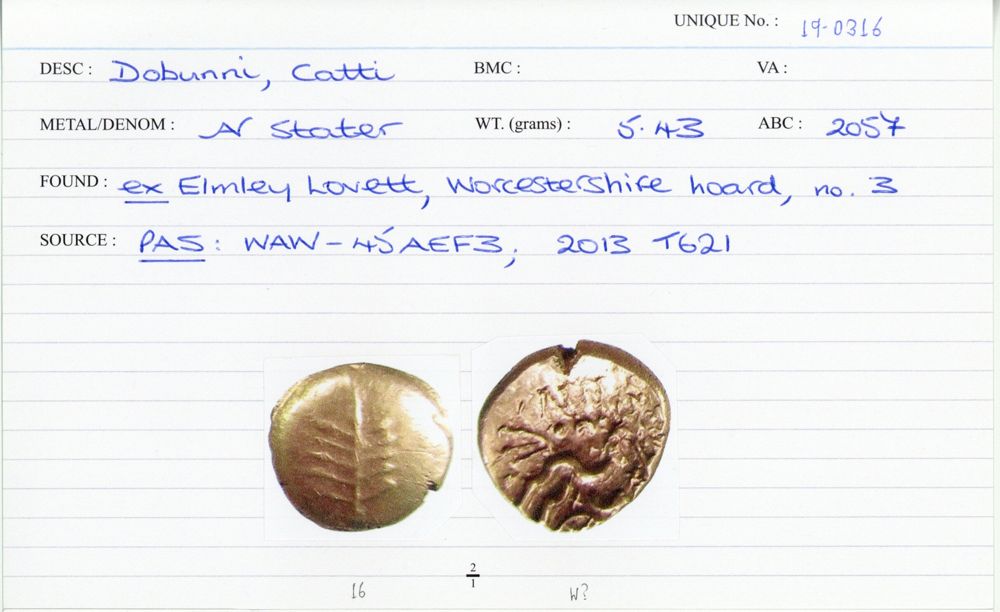 UNIQUE No. : 19-0316
DESC : Dobunni, Catti BMC : VA :
METAL/DENOM : N Stater WT. (grams) : 5.43 ABC : 2057
FOUND : ex Elmley Lovett, Worcestershire hoard, no. 3
SOURCE : PAS: WAW-45AEF3; 2013 T621
2
1
16 W?